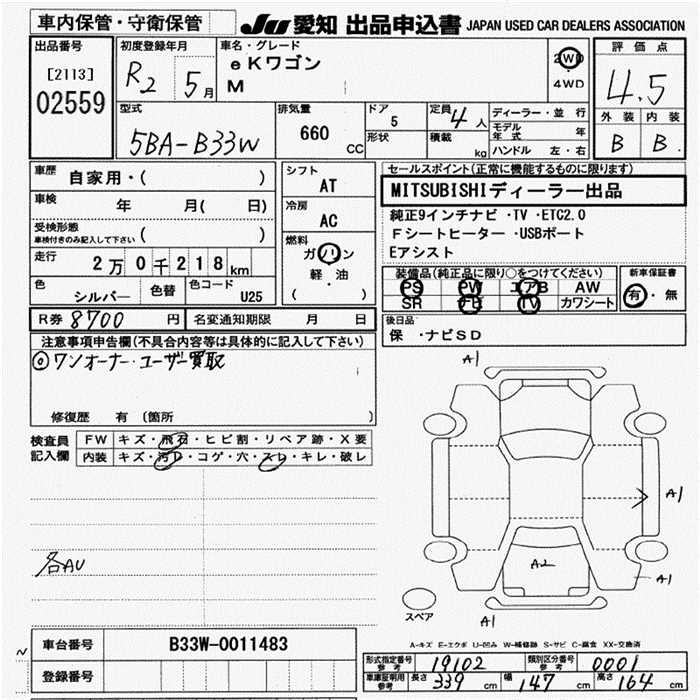 車内保管・守衛保管
JU 愛知 出品申込書 JAPAN USED CAR DEALERS ASSOCIATION
出品番号
[2113]
02559
初度登録年月
R2 5月
車名・グレード
eKワゴン
M
2WD
・
4WD
評価点
4.5
外装 内装
B B
型式
5BA-B33W
排気量
660 cc
ドア
5
形状
定員 4人
積載 kg
ディーラー・並行
モデル年式 年
ハンドル 左・右
車歴 自家用・( )
車検 年 月( 日)
受検形態
車検付きのみ記入して下さい ( )
走行 2万0千218km
色 シルバー 色替 色コード U25
シフト
AT
冷房
AC
燃料
ガソリン
軽・油
( )
セールスポイント(正常に機能するものに限ります)
MITSUBISHIディーラー出品
純正9インチナビ・TV・ETC2.0
Fシートヒーター・USBポート
Eアシスト
装備品(純正品に限り○をつけてください)
PS PW エアB AW
SR TV カワシート
新車保証書
有・無
R券 8700円 名変通知期限 月 日
後日品
保・ナビSD
注意事項申告欄(不具合内容等は具体的に記入して下さい)
◎ワンオーナー・ユーザー買取
修復歴 有 (箇所 )
検査員記入欄
FW キズ・飛石・ヒビ割・リペア跡・X要
内装 キズ・汚レ・コゲ・穴・スレ・キレ・破レ
各AU
A1
A1
A2
A1
A1
スペア
A-キズ E-エクボ U-凹み W-補修跡 S-サビ C-腐食 XX-交換済
車台番号 B33W-0011483
登録番号
型式指定番号 参考 19102 類別区分番号 参考 0001
車庫証明用 参考 長さ 339 cm 幅 147 cm 高さ 164 cm